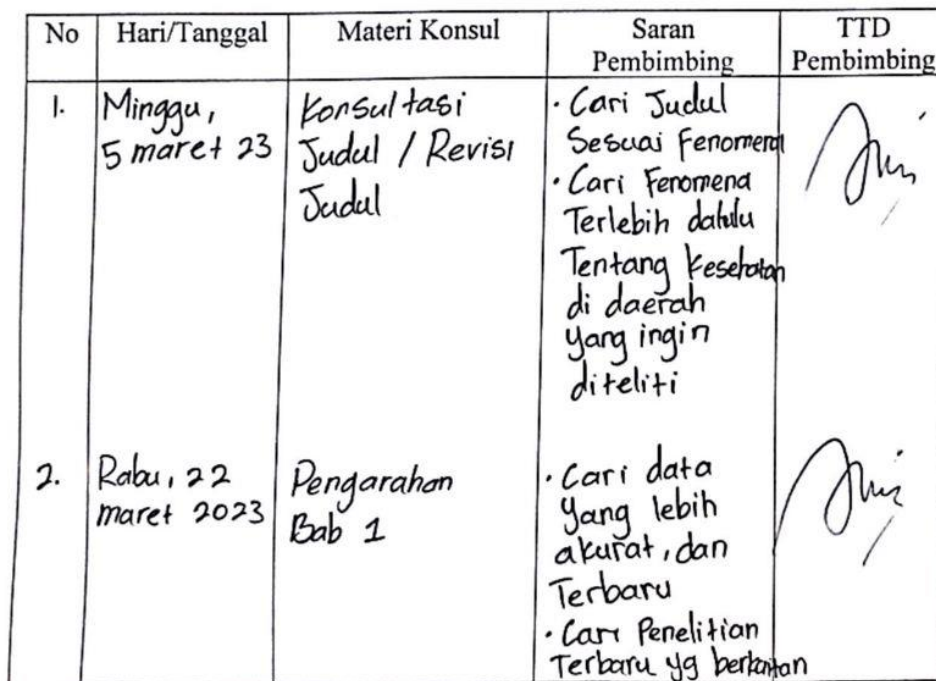 No Hari/Tanggal Materi Konsul Saran Pembimbing TTD Pembimbing
1.
Minggu,
5 maret 23
Konsultasi
Judul / Revisi
Judul
· Cari Judul
Sesuai Fenomena
· Cari Fenomena
Terlebih dahulu
Tentang kesehatan
di daerah
yang ingin
diteliti
2.
Rabu, 22
maret 2023
Pengarahan
Bab 1
· Cari data
yang lebih
akurat, dan
Terbaru
· Cari Penelitian
Terbaru yg berkaitan